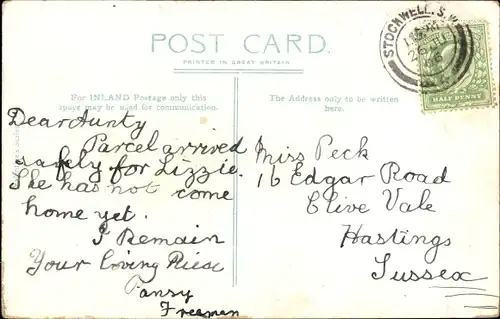 POST CARD.
PRINTED IN GREAT BRITAIN
For INLAND Postage only this
space may be used for communication.
The Address only to be written
here.
STOCKWELL. S.W.
HALF PENNY
Dear Aunty
Parcel arrived
safely for Lizzie.
She has not come
home yet.
I Remain
Your loving Niese
Pansy
Freeman
Miss Peck
16 Edgar Road
Clive Vale
Hastings
Sussex